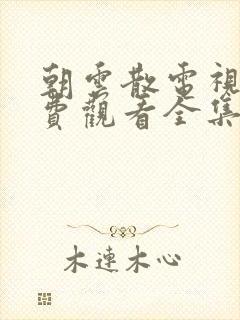 朝雲散電視
費觀看全集
木連木心